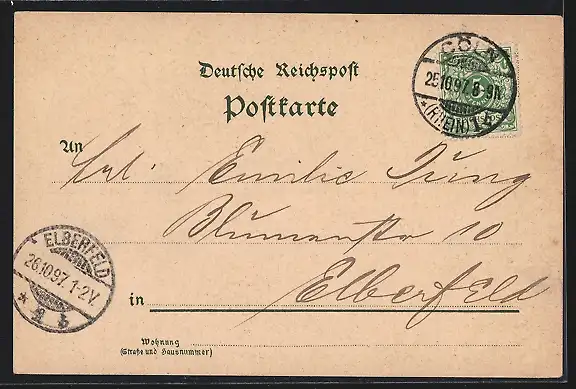 Deutsche Reichspost
Postkarte
CÖLN
25.10.97. 8-9N.
* (RHEIN) 1 d
An
Frl. Emilie Jung
Blumenstr 10
in Elberfeld
ELBERFELD
26.10.97. 1-2V.
* 2 b
Wohnung
(Straße und Hausnummer)